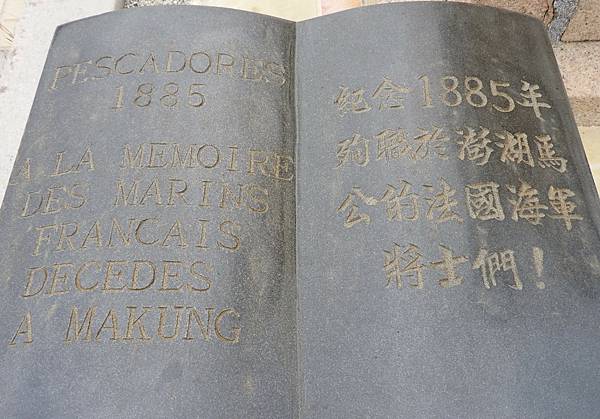 PESCADORES
1885
A LA MEMOIRE
DES MARINS
FRANCAIS
DECEDES
A MAKUNG
紀念1885年
殉職於澎湖馬
公的法國海軍
將士們!